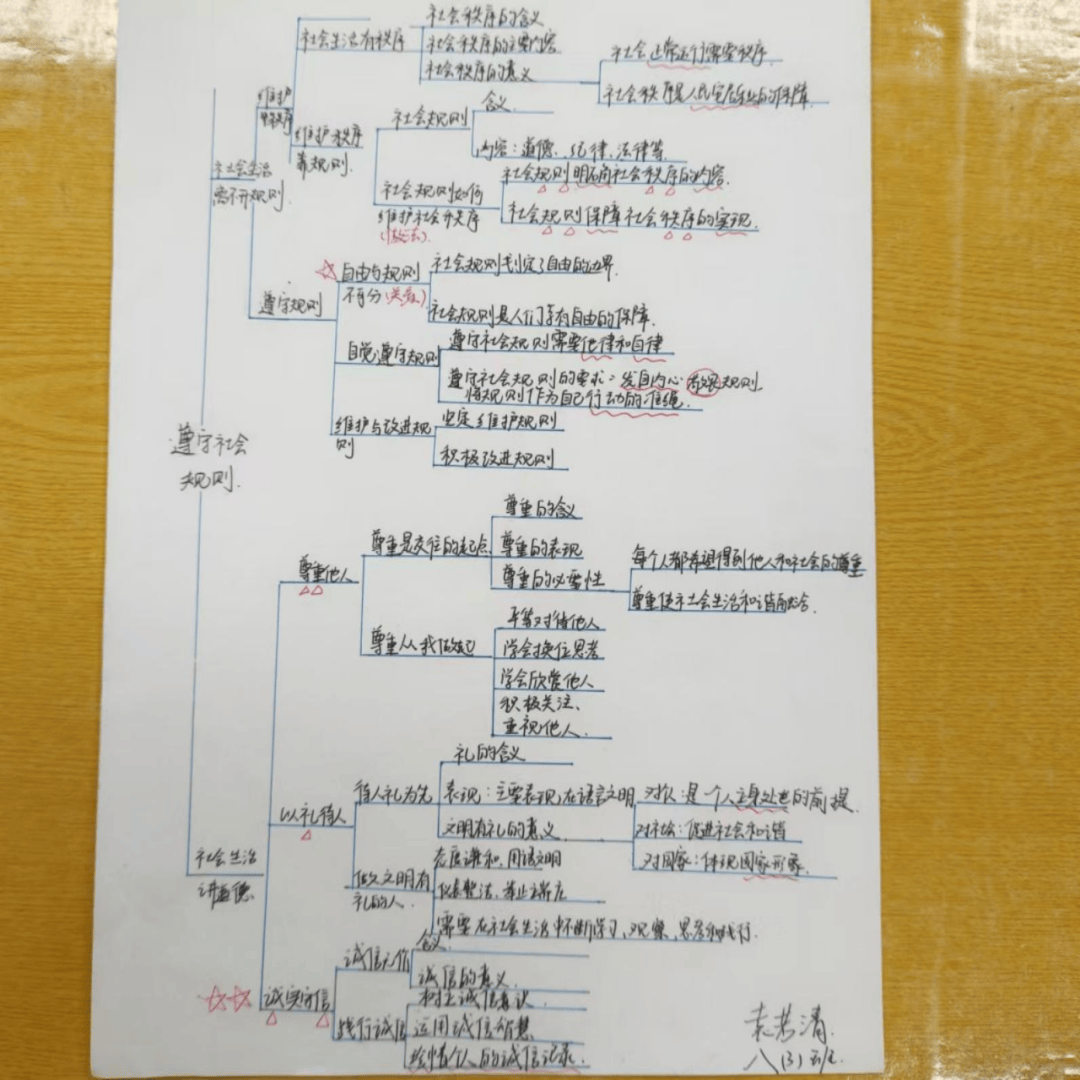 社会秩序的含义
社会生活有秩序
社会秩序的主要内容
社会秩序的意义
社会正常运行需要秩序
社会秩序是人民安居乐业的保障
维护
秩序
维护秩序
靠规则.
社会规则
含义
内容：道德、纪律、法律等.
社会规则如何
维护社会秩序
(做法).
社会规则明确社会秩序的内容.
社会规则保障社会秩序的实现.
社会生活
离不开规则.
遵守规则
自由与规则
不可分(关系)
社会规则划定了自由的边界.
社会规则是人们享有自由的保障.
自觉遵守规则
遵守社会规则需要他律和自律
遵守社会规则的要求：发自内心敬畏规则.
将规则作为自己行动的准绳.
维护与改进规
则
坚定维护规则
积极改进规则
遵守社会
规则.
尊重他人
尊重是交往的起点.
尊重的含义
尊重的表现
尊重的必要性
每个人都希望得到他人和社会的尊重
尊重使社会生活和谐融洽.
尊重从我做起
平等对待他人
学会换位思考
学会欣赏他人
积极关注、
重视他人.
以礼待人
待人礼为先
礼的含义
表现：主要表现在语言文明
文明有礼的意义
对个人：是个人立身处世的前提.
对社会：促进社会和谐
对国家：体现国家形象.
社会生活
讲道德.
做文明有
礼的人.
态度谦和，用语文明
仪表整洁、举止端庄
需要在社会生活中不断学习、观察、思考和践行.
诚实守信
诚信无价
含义.
诚信的意义
践行诚信
树立诚信意识.
运用诚信智慧.
珍惜个人的诚信记录.
清.
八(3)班